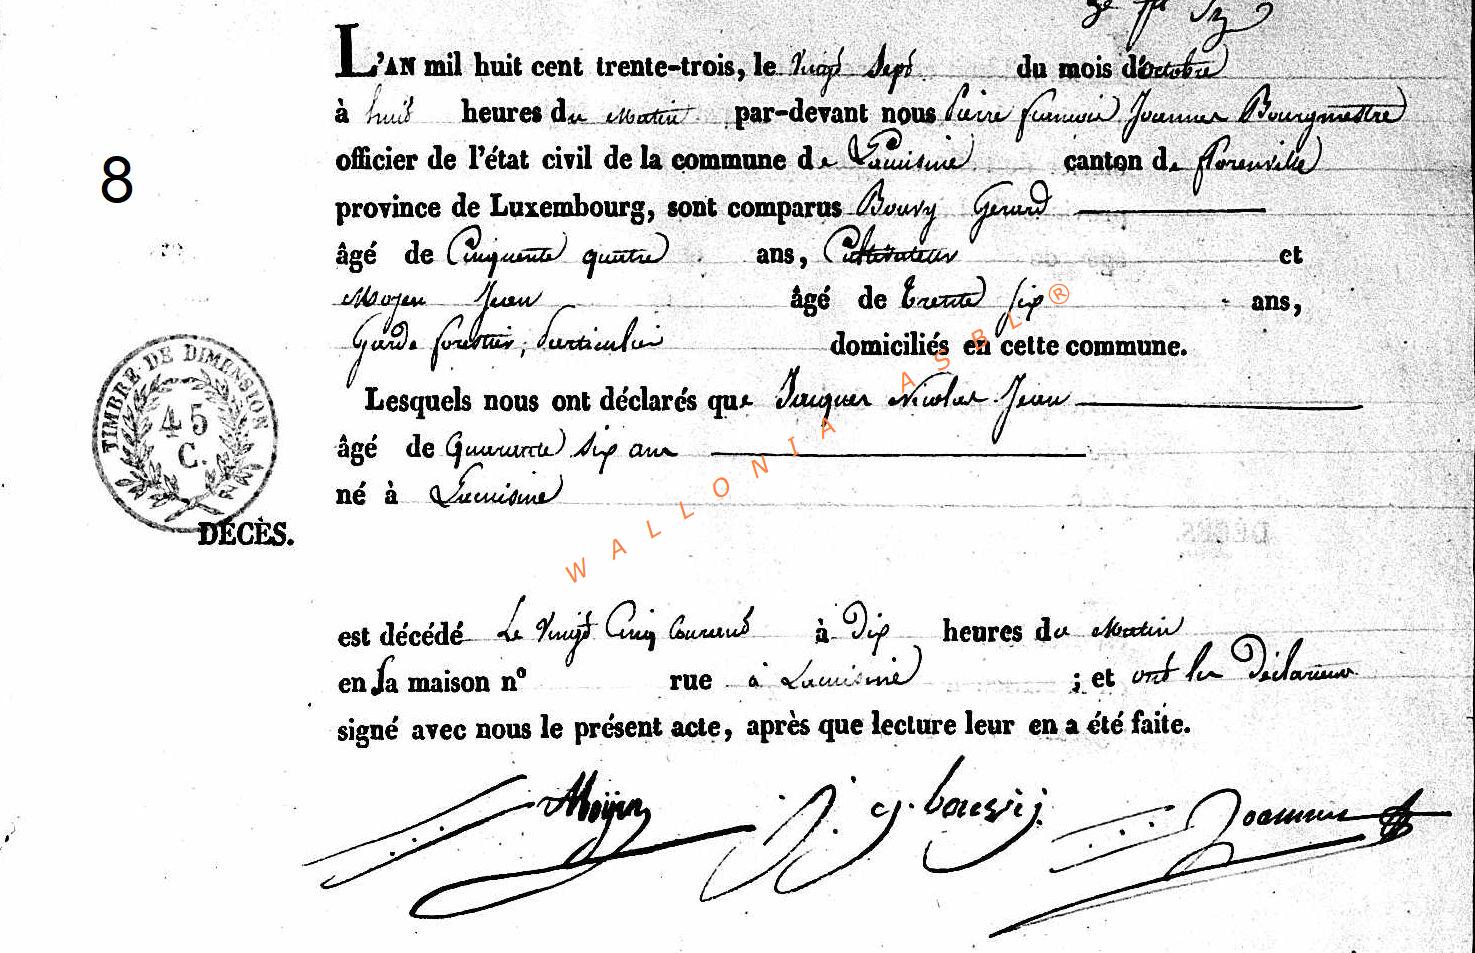 L'AN mil huit cent trente-trois, le Vingt Sept du mois d'octobre
à huit heures du matin par-devant nous Pierre françois Joannes Bourgmestre
officier de l'état civil de la commune de Lacuisine canton de florenville
province de Luxembourg, sont comparus Bouvy Gerard
8
âgé de Cinquante quatre ans, Cultivateur et
Moyen Jean âgé de trente six ans,
Garde forestier, particulier domiciliés en cette commune.
Lesquels nous ont déclarés que Jacques Nicolas Jean
âgé de Quarante six ans
né à Lacuisine
TIMBRE DE DIMENSION
45
C.
DÉCÈS.
WALLONIA ASBL ®
est décédé Le Vingt Cinq Courant à Dix heures du Matin
en sa maison nº rue à Lacuisine ; et ont les Déclarans
signé avec nous le présent acte, après que lecture leur en a été faite.
Moÿen g. bouvij Joannes